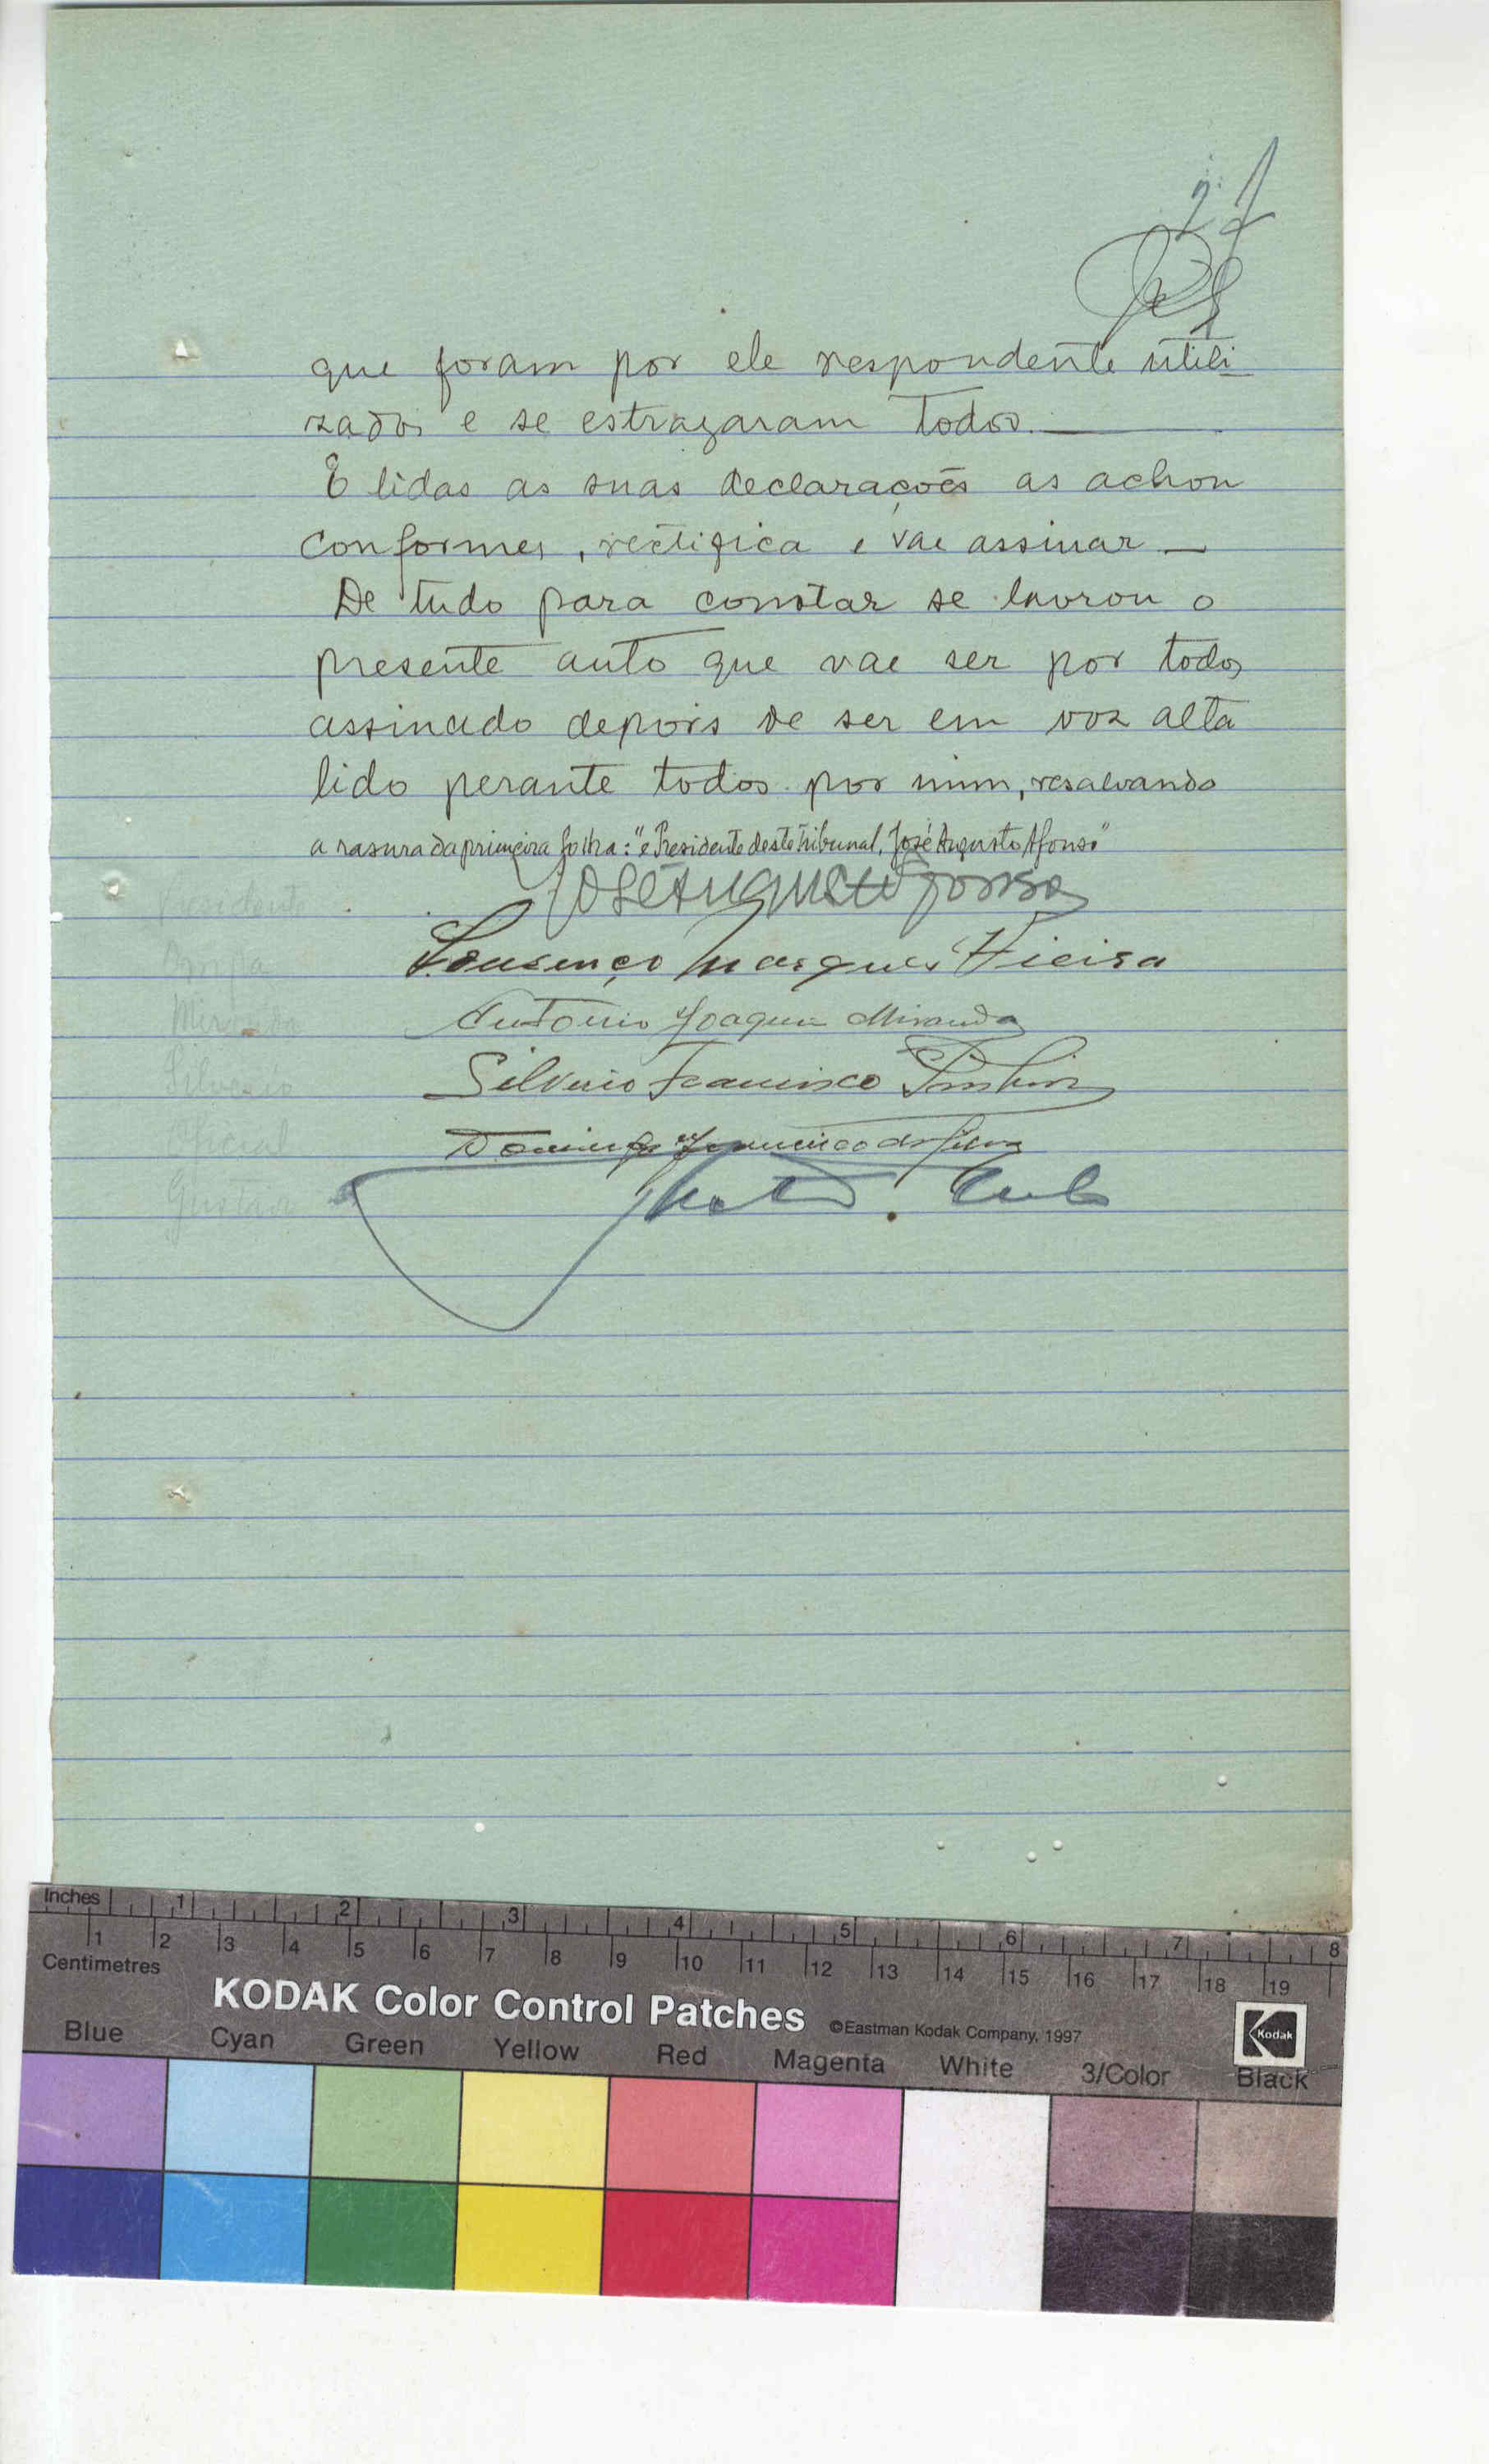 27
que foram por ele respondente utili
zados e se estragaram todos.
E lidas as suas declarações as achou
conformes, rectifica e vae assinar
De tudo para constar se lavrou o
presente auto que vae ser por todos
assinado depois de ser em voz alta
lido perante todos por mim, resalvando
a rasura da primeira folha: "e Presidente deste Tribunal, José Augusto Afonso"
José Augusto Afonso
Presidente
Lourenço Marques Vieira
António Joaquim Miranda
Miranda
Silverio Francisco
Silverio
Domingos Francisco da Silva
Oficial
Gustavo
Inches 1 2 3 4 5 6 7 8
1 2 3 4 5 6 7 8 9 10 11 12 13 14 15 16 17 18 19
Centimetres
KODAK Color Control Patches ©Eastman Kodak Company, 1997 Kodak
Blue Cyan Green Yellow Red Magenta White 3/Color Black